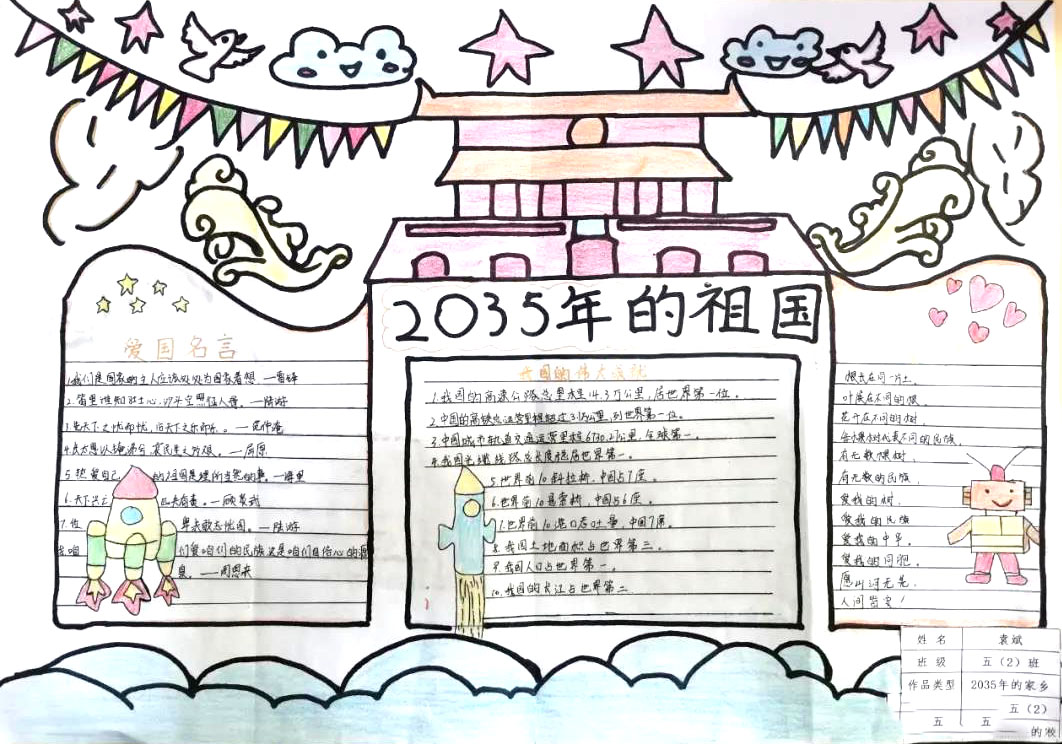 2035年的祖国
爱国名言
1.我们是国家的主人应该处处为国家着想。—雷锋
2.
—陆游
3.先天下之忧而忧,后天下之乐而乐。—范仲淹
4. —屈原
5.热爱自己 的祖国是理所当然的事。—海涅
6.天下兴亡 匹夫有责。—顾炎武
7.位 卑未敢忘忧国。—陆游
们爱咱们的民族
—周恩来
我国的伟大成就
1.我国的高速公路总里程14.3万公里,居世界第一位。
2.中国的高铁 运营里程超过3.1万公里,列世界第一位。
3.中国城市轨道交通运营里程6730.27公里,全球第一。
4.我国光缆线路总长度稳居世界第一。
5.世界前10斜拉桥,中国占7座。
6.世界前10悬索桥,中国占6座。
7.世界前10港口吞吐量,中国7席。
8.我国土地面积占世界第三。
9.我国人口占世界第一。
10.我国的长江占世界第二
根长在同一片土,
叶展在不同的根,
花开在不同的树,
各棵树代表不同的民族,
有无数棵树,
有无数的民族,
爱我的树,
爱我的民族
爱我的中华,
爱我的同胞,
愿山河无恙,
人间皆安!
姓名 袁斌
班级 五(2)班
作品类型 2035年的家乡
五(2)
五 五
的